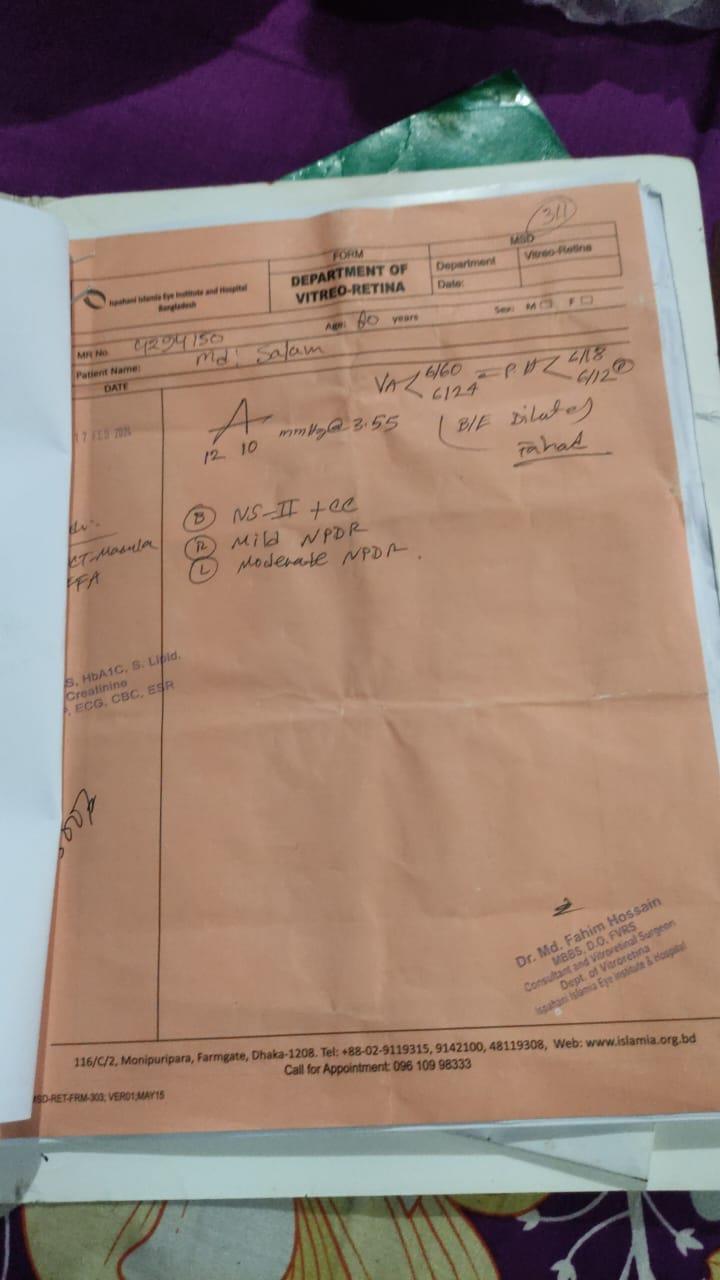 311
FORM
DEPARTMENT OF
VITREO-RETINA
MSD
Department Vitreo-Retina
Date:
Ispahani Islamia Eye Institute and Hospital
Bangladesh
Age: 60 years Sex: M F
MR No. 4294150
Patient Name: Md: Salam
DATE
17 FEB
VA < 6/60 6/24 = P.H < 6/18 6/12 P
A
12 10 mmHg @ 3.55
B/E Dilated
Fahad
B NS-II + CC
R Mild NPDR
L Moderate NPDR.
CT-Macula
FFA
S, HbA1C, S. Lipid,
Creatinine
, ECG, CBC, ESR
Dr. Md. Fahim Hossain
MBBS, D.O, FVRS
Consultant and Vitroretinal Surgeon
Dept. of Vitroretina
Ispahani Islamia Eye Institute & Hospital
116/C/2, Monipuripara, Farmgate, Dhaka-1208. Tel: +88-02-9119315, 9142100, 48119308, Web: www.islamia.org.bd
Call for Appointment: 096 109 98333
MSD-RET-FRM-303; VER01;MAY15